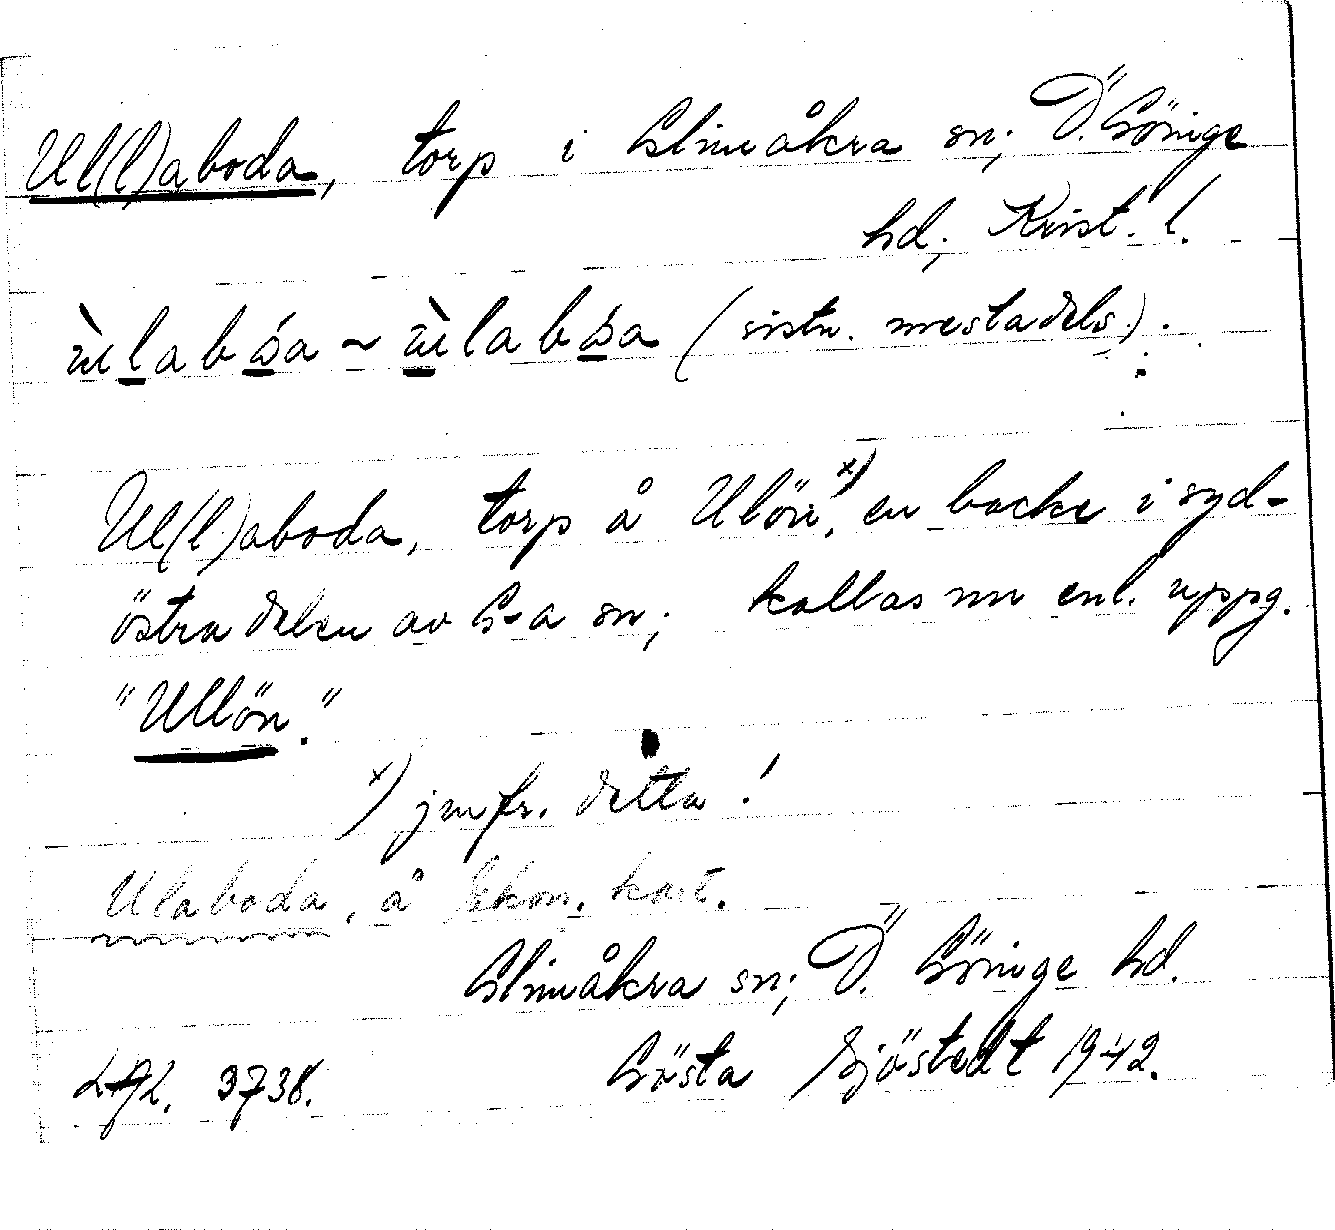 Ul(l)aboda, torp i Glimåkra sn; Ö. Göinge
hd; Krist. l.
(sistn. mestadels.).
Ul(l)aboda, torp å Ulön,x) en backe i syd-
östra delen av G-a sn; kallas nu enl. uppg.
"Ullön."
x) jmfr. detta!
Ulaboda, å Ekon. kart.
Glimåkra sn; Ö. Göinge hd.
LAL. 3738. Gösta Sjöstedt 1942.